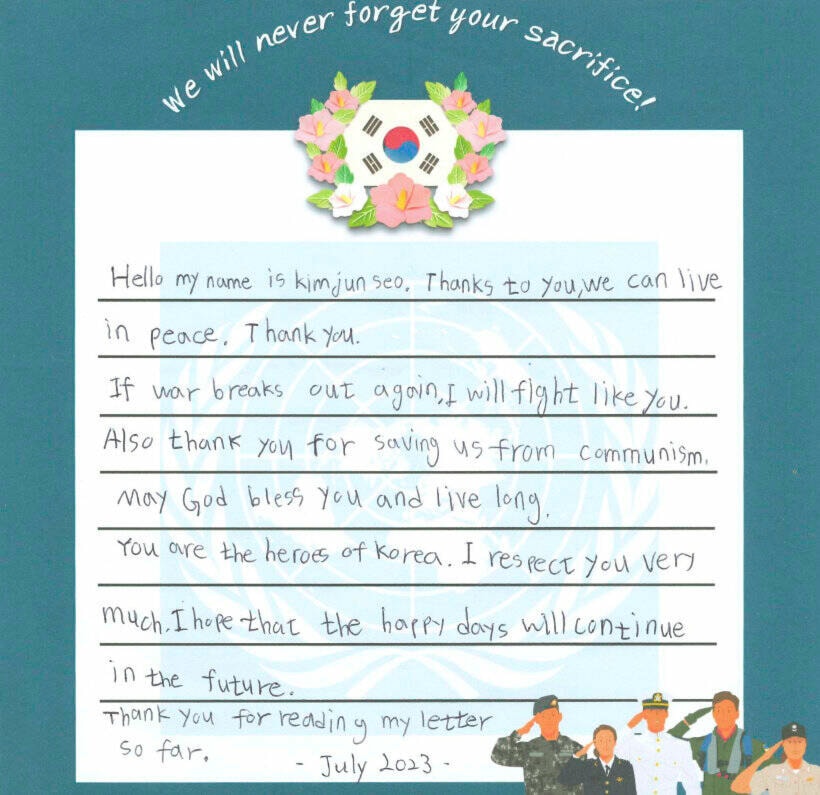 We will never forget your sacrifice!
Hello my name is kimjunseo. Thanks to you,we can live
in peace. Thank you.
If war breaks out again,I will fight like you.
Also thank you for saving us from communism.
May God bless you and live long.
You are the heroes of Korea. I respect you very
much.I hope that the happy days will continue
in the future.
Thank you for reading my letter
so far.
- July 2023 -